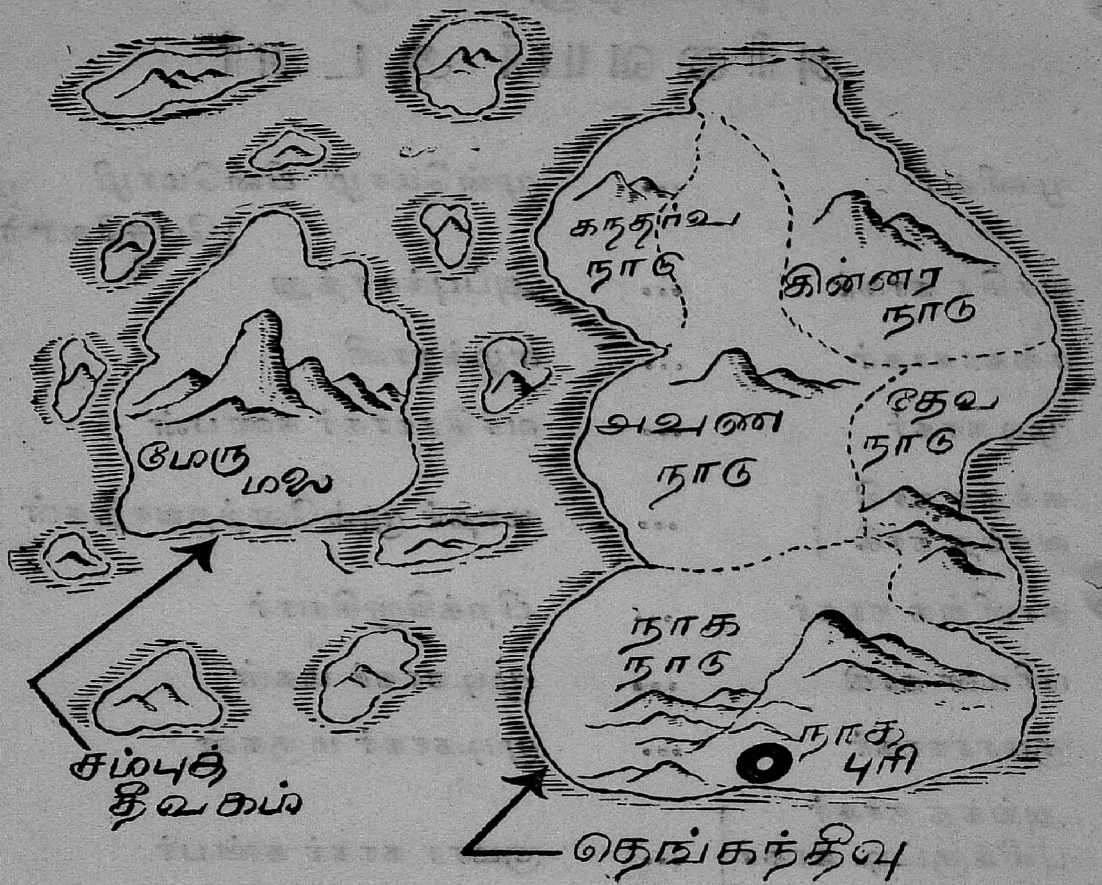 கந்தர்வ
நாடு
கின்னர
நாடு
அவுண
நாடு
தேவ
நாடு
மேரு
மலை
நாக
நாடு
நாக
புரி
சம்புத்
தீவகம்
தெங்கந்தீவு